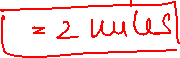 = 2 miles